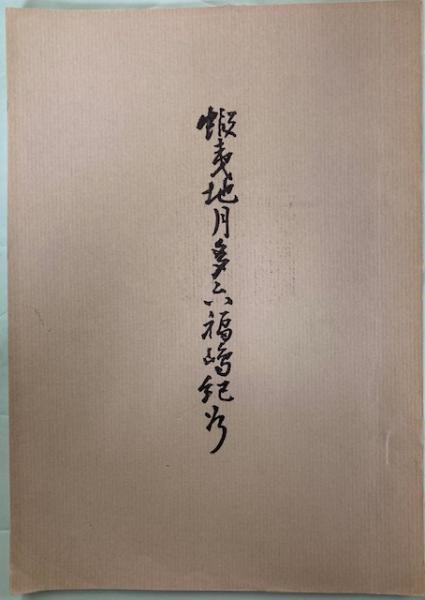 蝦夷地月多六福嶋紀行